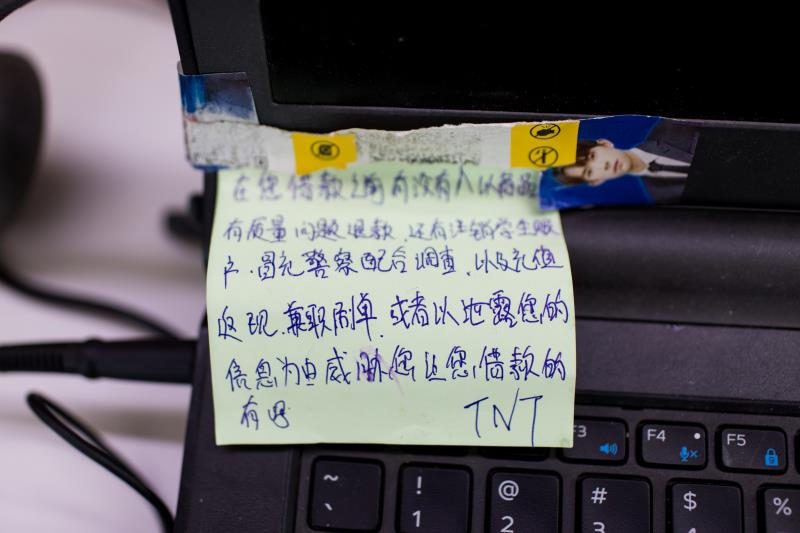 在您借款之前有没有人以商品
有质量问题退款.还有注销学生账
户.冒充警察配合调查.以及充值
返现.兼职刷单.或者以泄露您的
信息为由威胁您让您借款的
有吗
TNT
F3
F4
F5
~
`
!
1
@
2
#
3
$
4
%